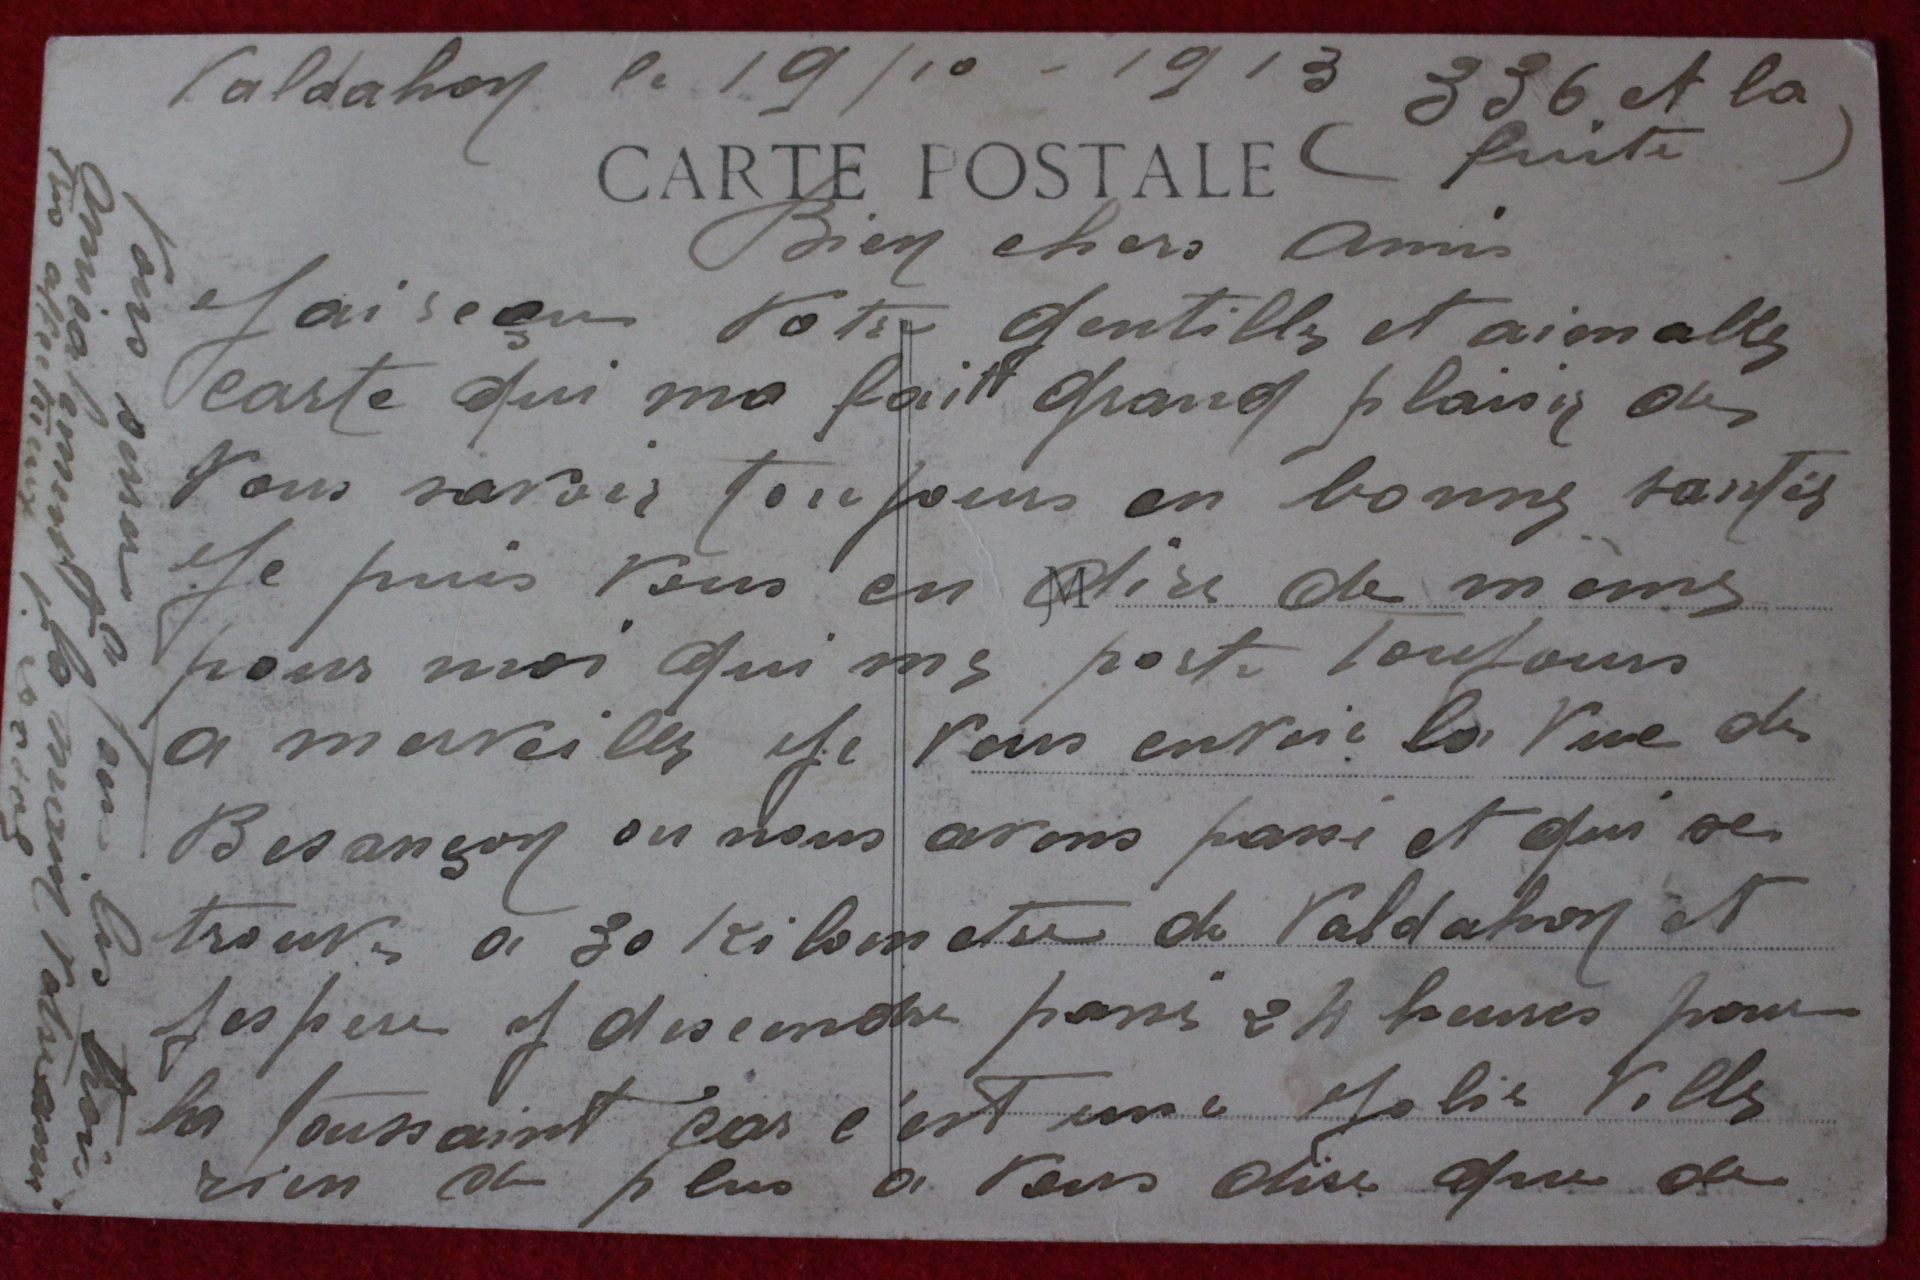 Valdahon le 19/10 - 1913
336 et la
( fuite )
CARTE POSTALE
Bien chers Amis
J'ai reçu votre gentille et aimable
carte qui ma fait grand plaisir de
vous savoir toujours en bonne santé
Je puis vous en dire de même
M
pour moi qui me porte toujours
a merveille Je vous envoie la vue de
Besançon ou nous avons passé et qui se
trouve a 30 kilometre de Valdahon et
J'espere y descendre passé 24 heures pour
la Toussaint car c'est une Jolie Ville
rien de plus a vous dire que de
vous serrer a tous les trois
Amicalement la main votre ami